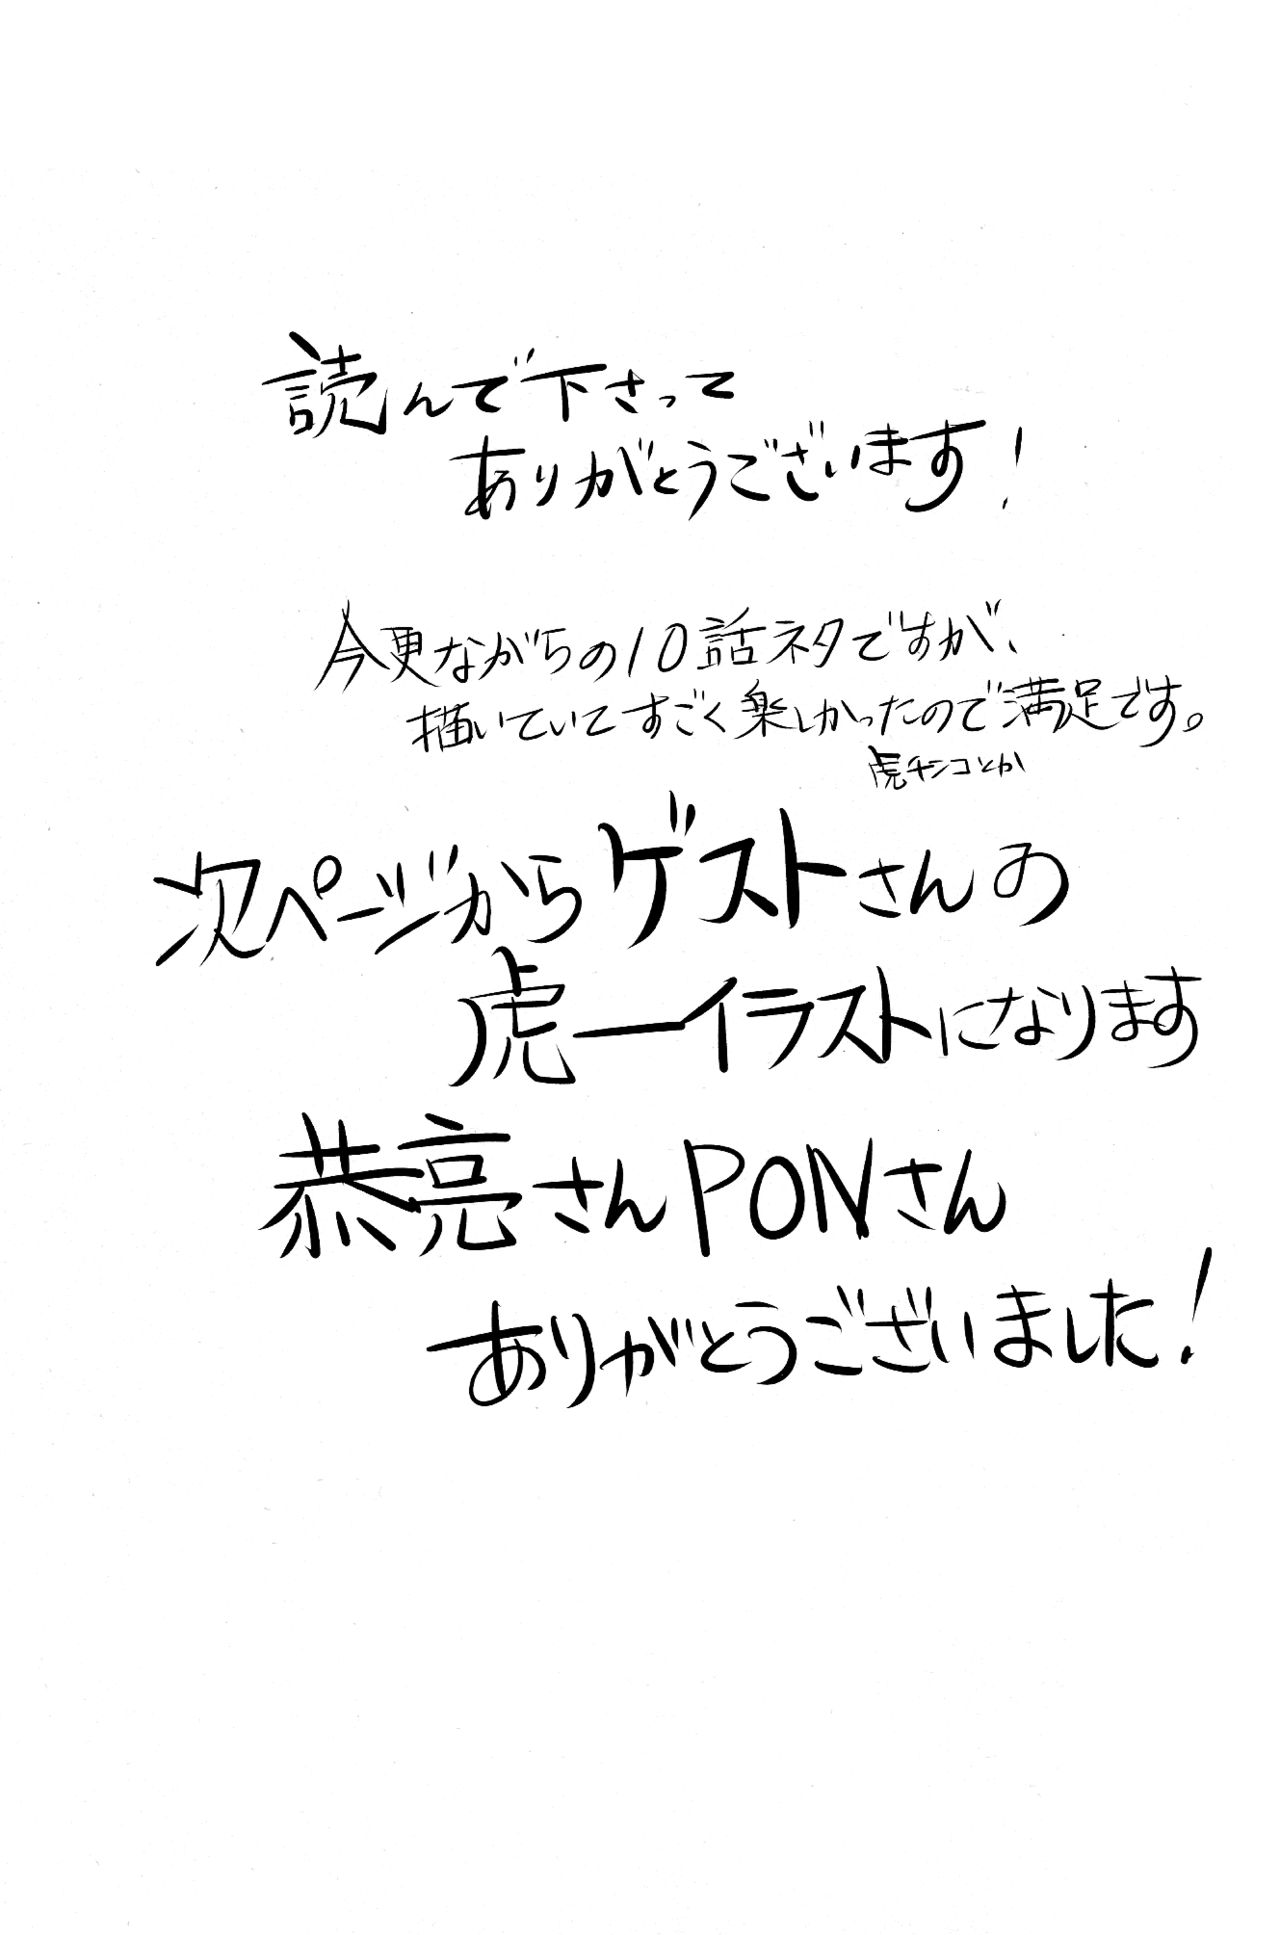 読んで下さって
ありがとうございます！
今更ながらの10話ネタですが、
描いていてすごく楽しかったので満足です。
虎チンコとか
次ページからゲストさんの
虎一イラストになります
恭亮さんPONさん
ありがとうございました！